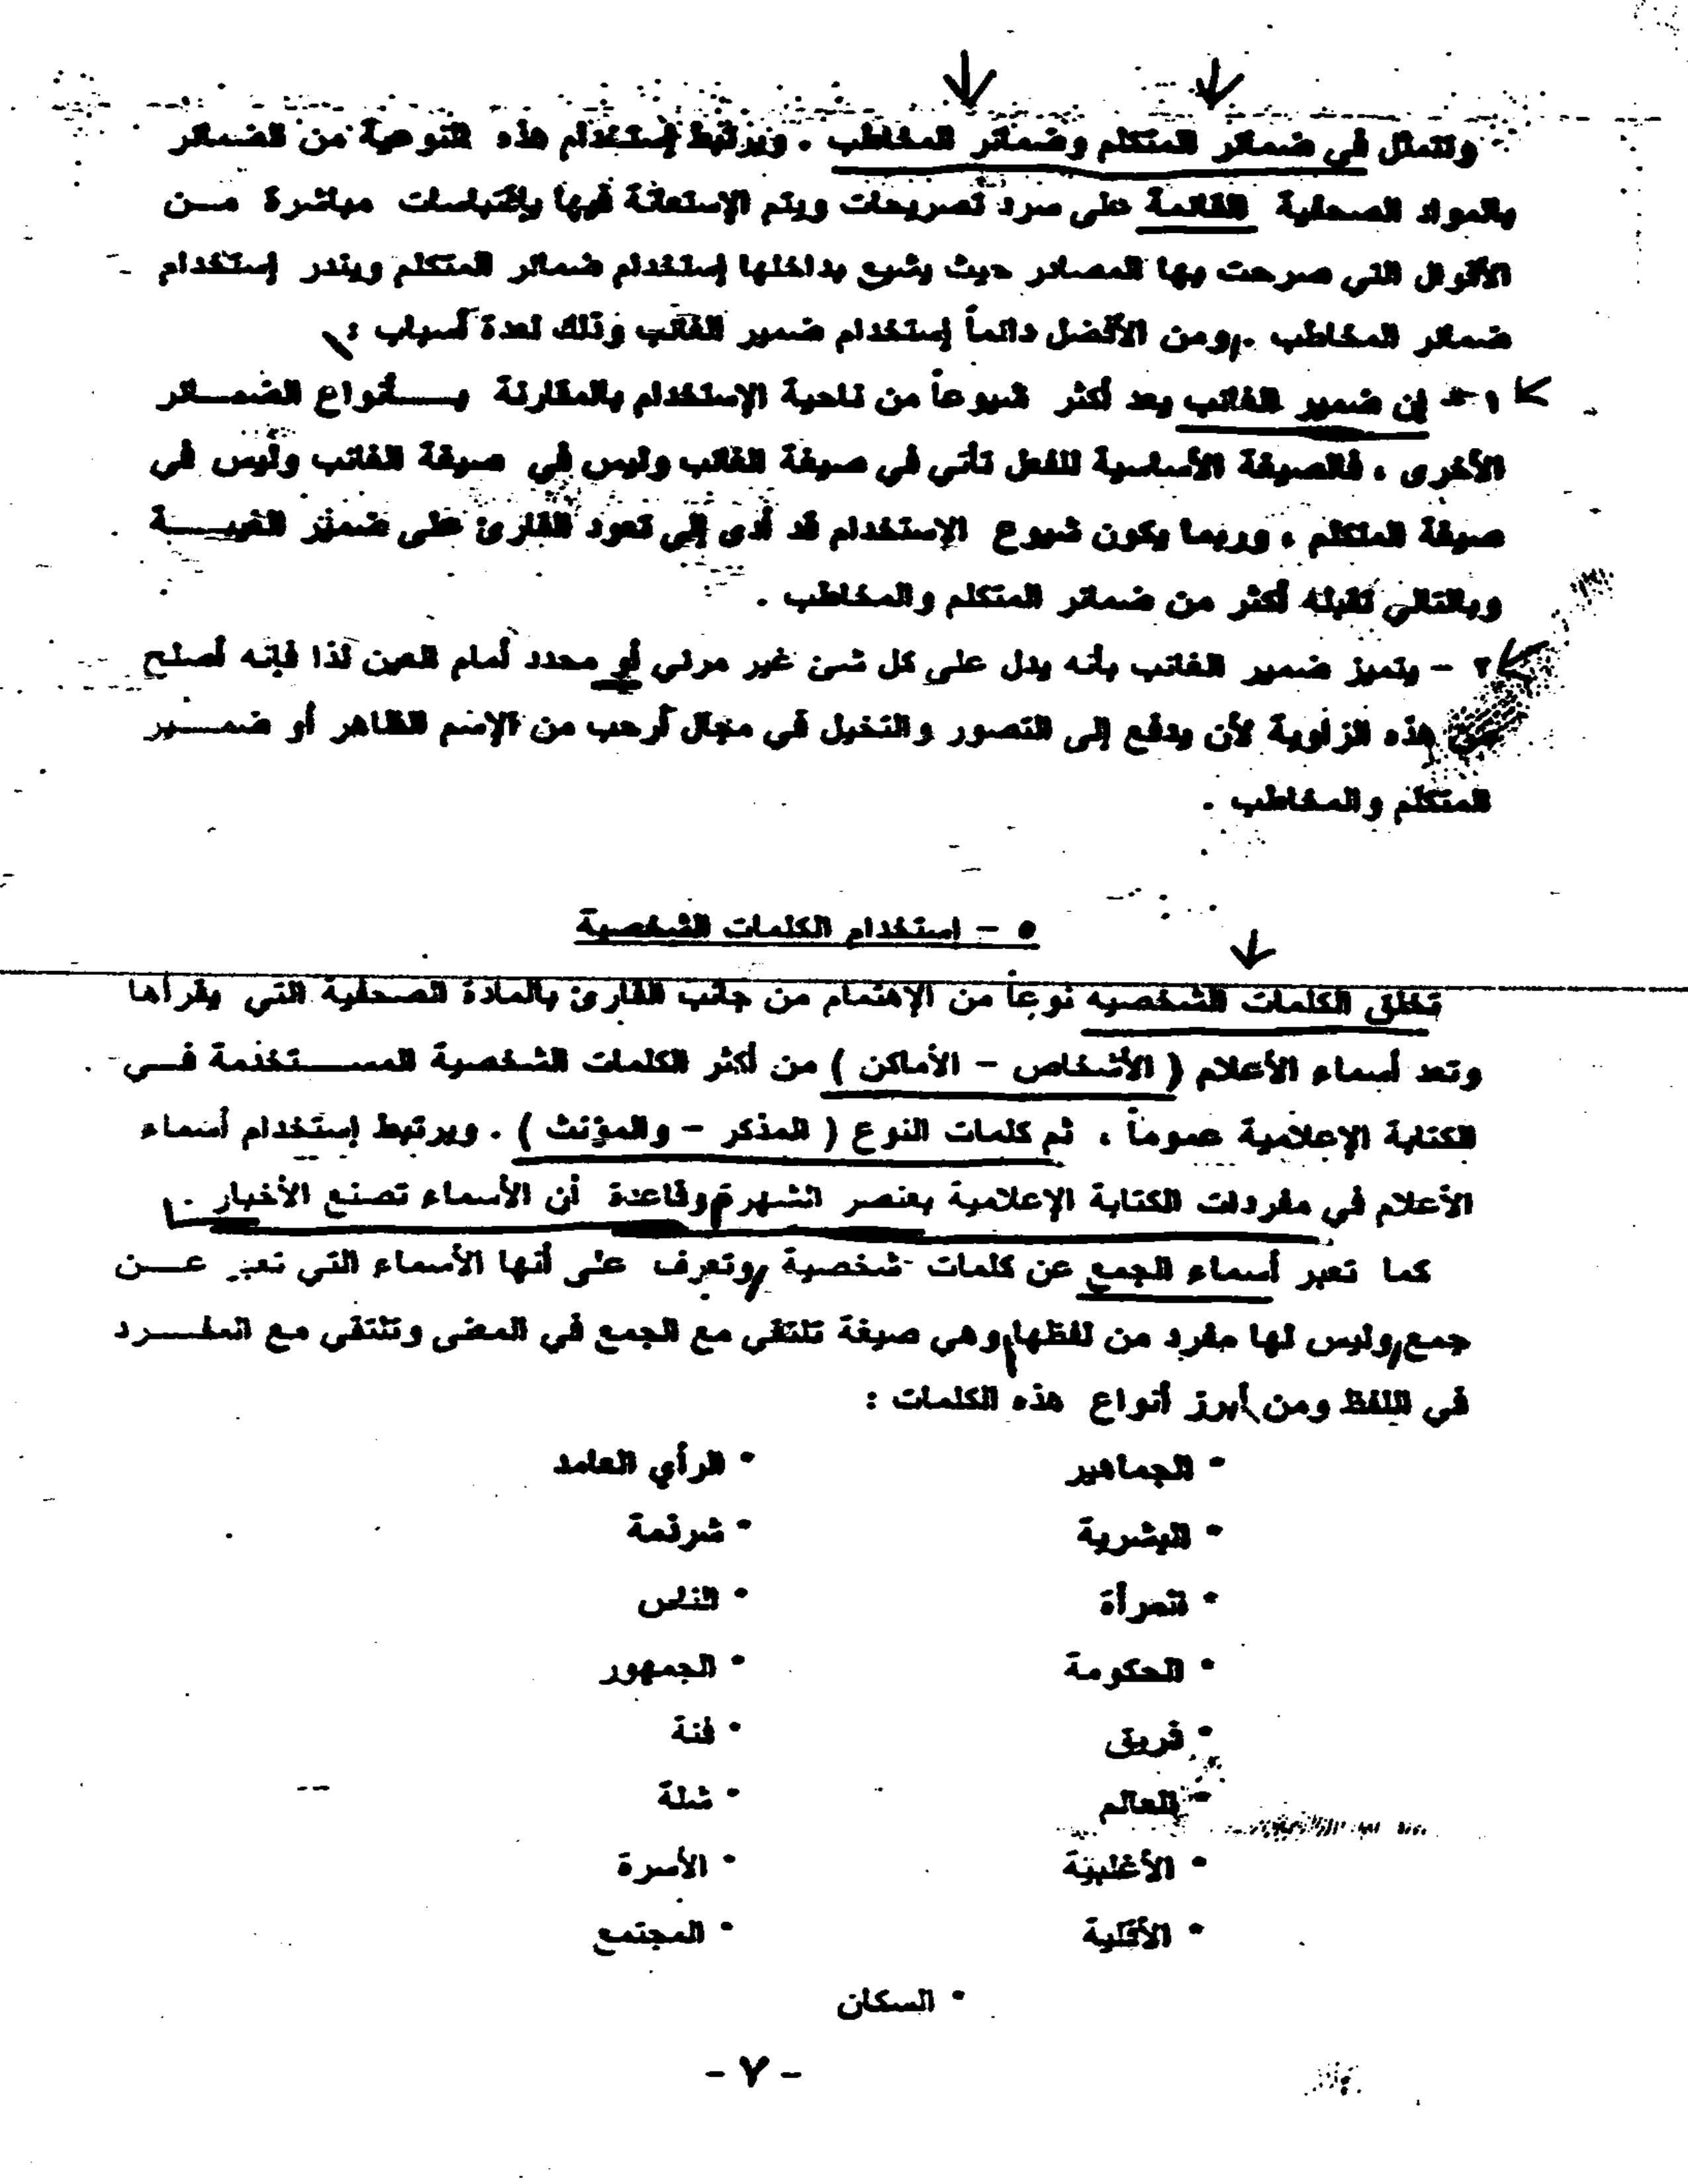 وتتمثل في ضمائر المتكلم وضمائر المخاطب . ويرتبط إستخدام هذه النوعية من الضمائر
بالمواد الصحفية القائمة على سرد تصريحات ويتم الإستعانة فيها بإقتباسات مباشرة مـن
الأقوال التي صرحت بها المصادر حيث يشيع بداخلها إستخدام ضمائر المتكلم ويندر إستخدام
ضمائر المخاطب . ومن الأفضل دائماً إستخدام ضمير الغائب وذلك لعدة أسباب :
١ - إن ضمير الغائب يعد أكثر شيوعاً من ناحية الإستخدام بالمقارنة بـأنواع الضمـائر
الأخرى ، فالصيغة الأساسية للفعل تأتي في صيغة الغائب وليس في صيغة الغائب وليس في
صيغة المتكلم ، وربما يكون شيوع الإستخدام قد أدى إلى تعود القارئ على ضمير الغيبـة
وبالتالي تقبله أكثر من ضمائر المتكلم والمخاطب .
٢ - يتميز ضمير الغائب بأنه يدل على كل شئ غير مرئي أو محدد أمام العين لذا فإنه أصلح
من هذه الزاوية لأن يدفع إلى التصور والتخيل في مجال أرحب من الإسم الظاهر أو ضمـير
المتكلم والمخاطب .
٥ - إستخدام الكلمات الشخصية
تخلق الكلمات الشخصيه نوعاً من الإهتمام من جانب القارئ بالمادة الصحفية التي يقرأها
وتعد أسماء الأعلام ( الأشخاص - الأماكن ) من أكثر الكلمات الشخصية المسـتخدمة فـي
الكتابة الإعلامية عموماً ، ثم كلمات النوع ( المذكر - والمؤنث ) . ويرتبط إستخدام أسماء
الأعلام في مفردات الكتابة الإعلامية بعنصر الشهرة وقاعدة أن الأسماء تصنع الأخبار .
كما تعبر أسماء الجمع عن كلمات شخصية وتعرف على أنها الأسماء التي تعبر عـن
جمع وليس لها مفرد من لفظها وهي صيغة تلتقي مع الجمع في المعنى وتلتقي مع المفـرد
في اللفظ ومن أبرز أنواع هذه الكلمات :
* الجماهير * الرأي العامد
* البشرية * شرذمة
* المرأة * الناس
* الحكومة * الجمهور
* فريق * فئة
* العالم * شلة
* الأغلبية * الأسرة
* الأقلية * المجتمع
* السكان
- ٧ -